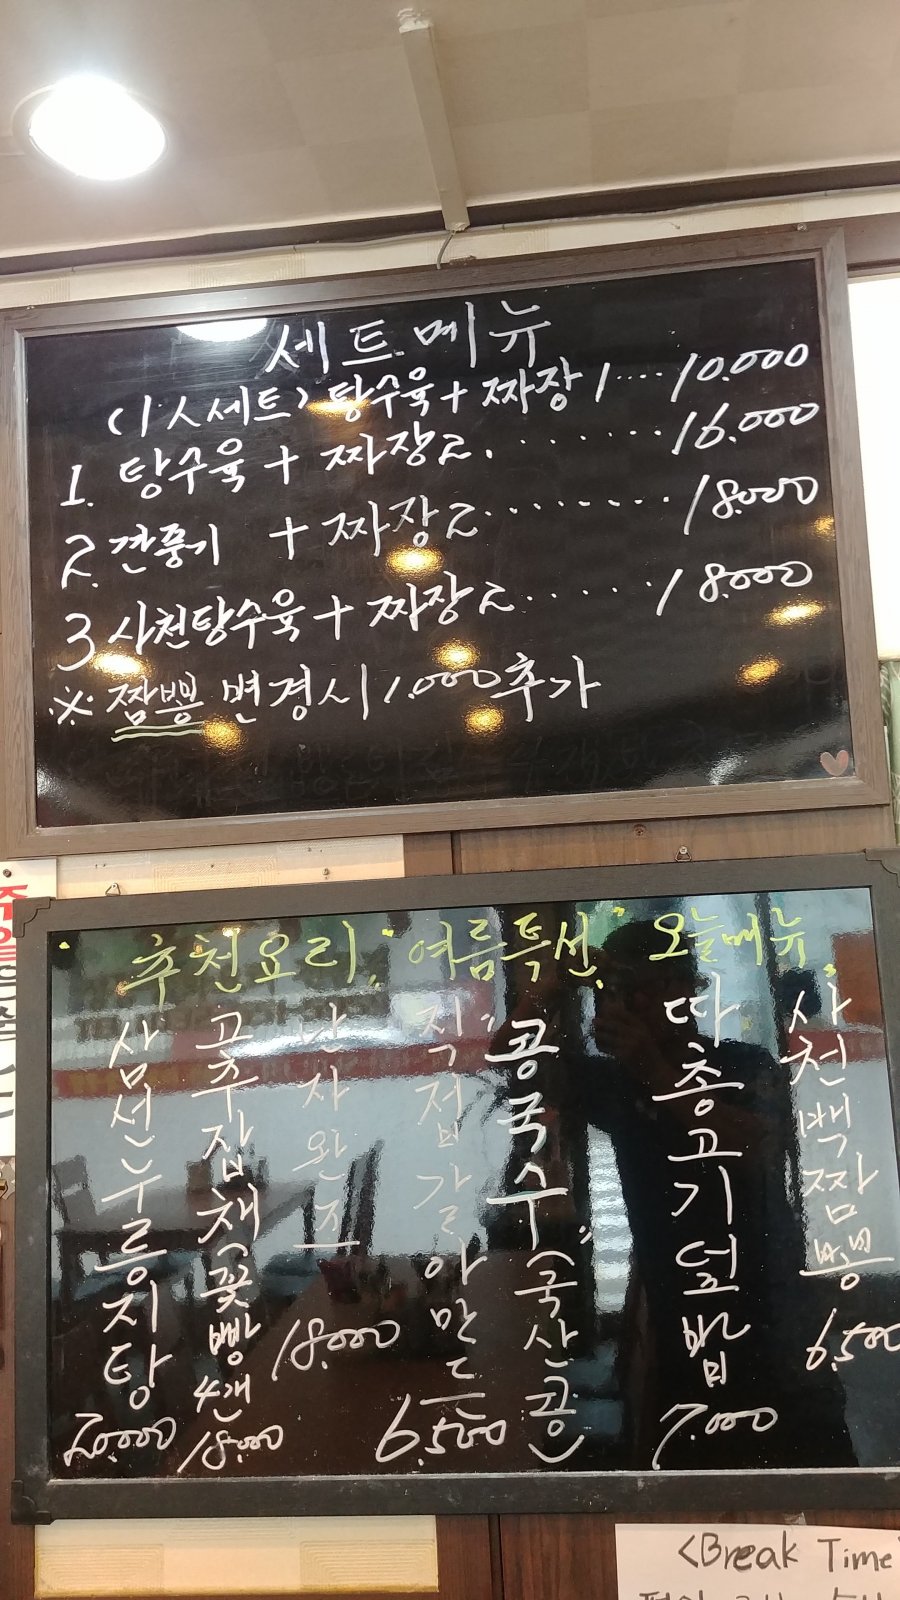 세트메뉴
(1人세트) 탕수육 + 짜장 1 ... 10.000
1. 탕수육 + 짜장 2. ....... 16.000
2. 깐풍기 + 짜장 2 ......... 18.000
3 사천탕수육 + 짜장 2 ...... 18.000
※ 짬뽕 변경시 1.000 추가
"추천요리"
삼선누룽지탕
20.000
고추잡채(꽃빵4개
18.000
난자완즈
18.000
"여름특선"
직접갈아만든
"콩국수"(국산콩)
6.500
오늘메뉴"
따총고기덮밥
7.000
사천백짬뽕
6.500
<Break Time